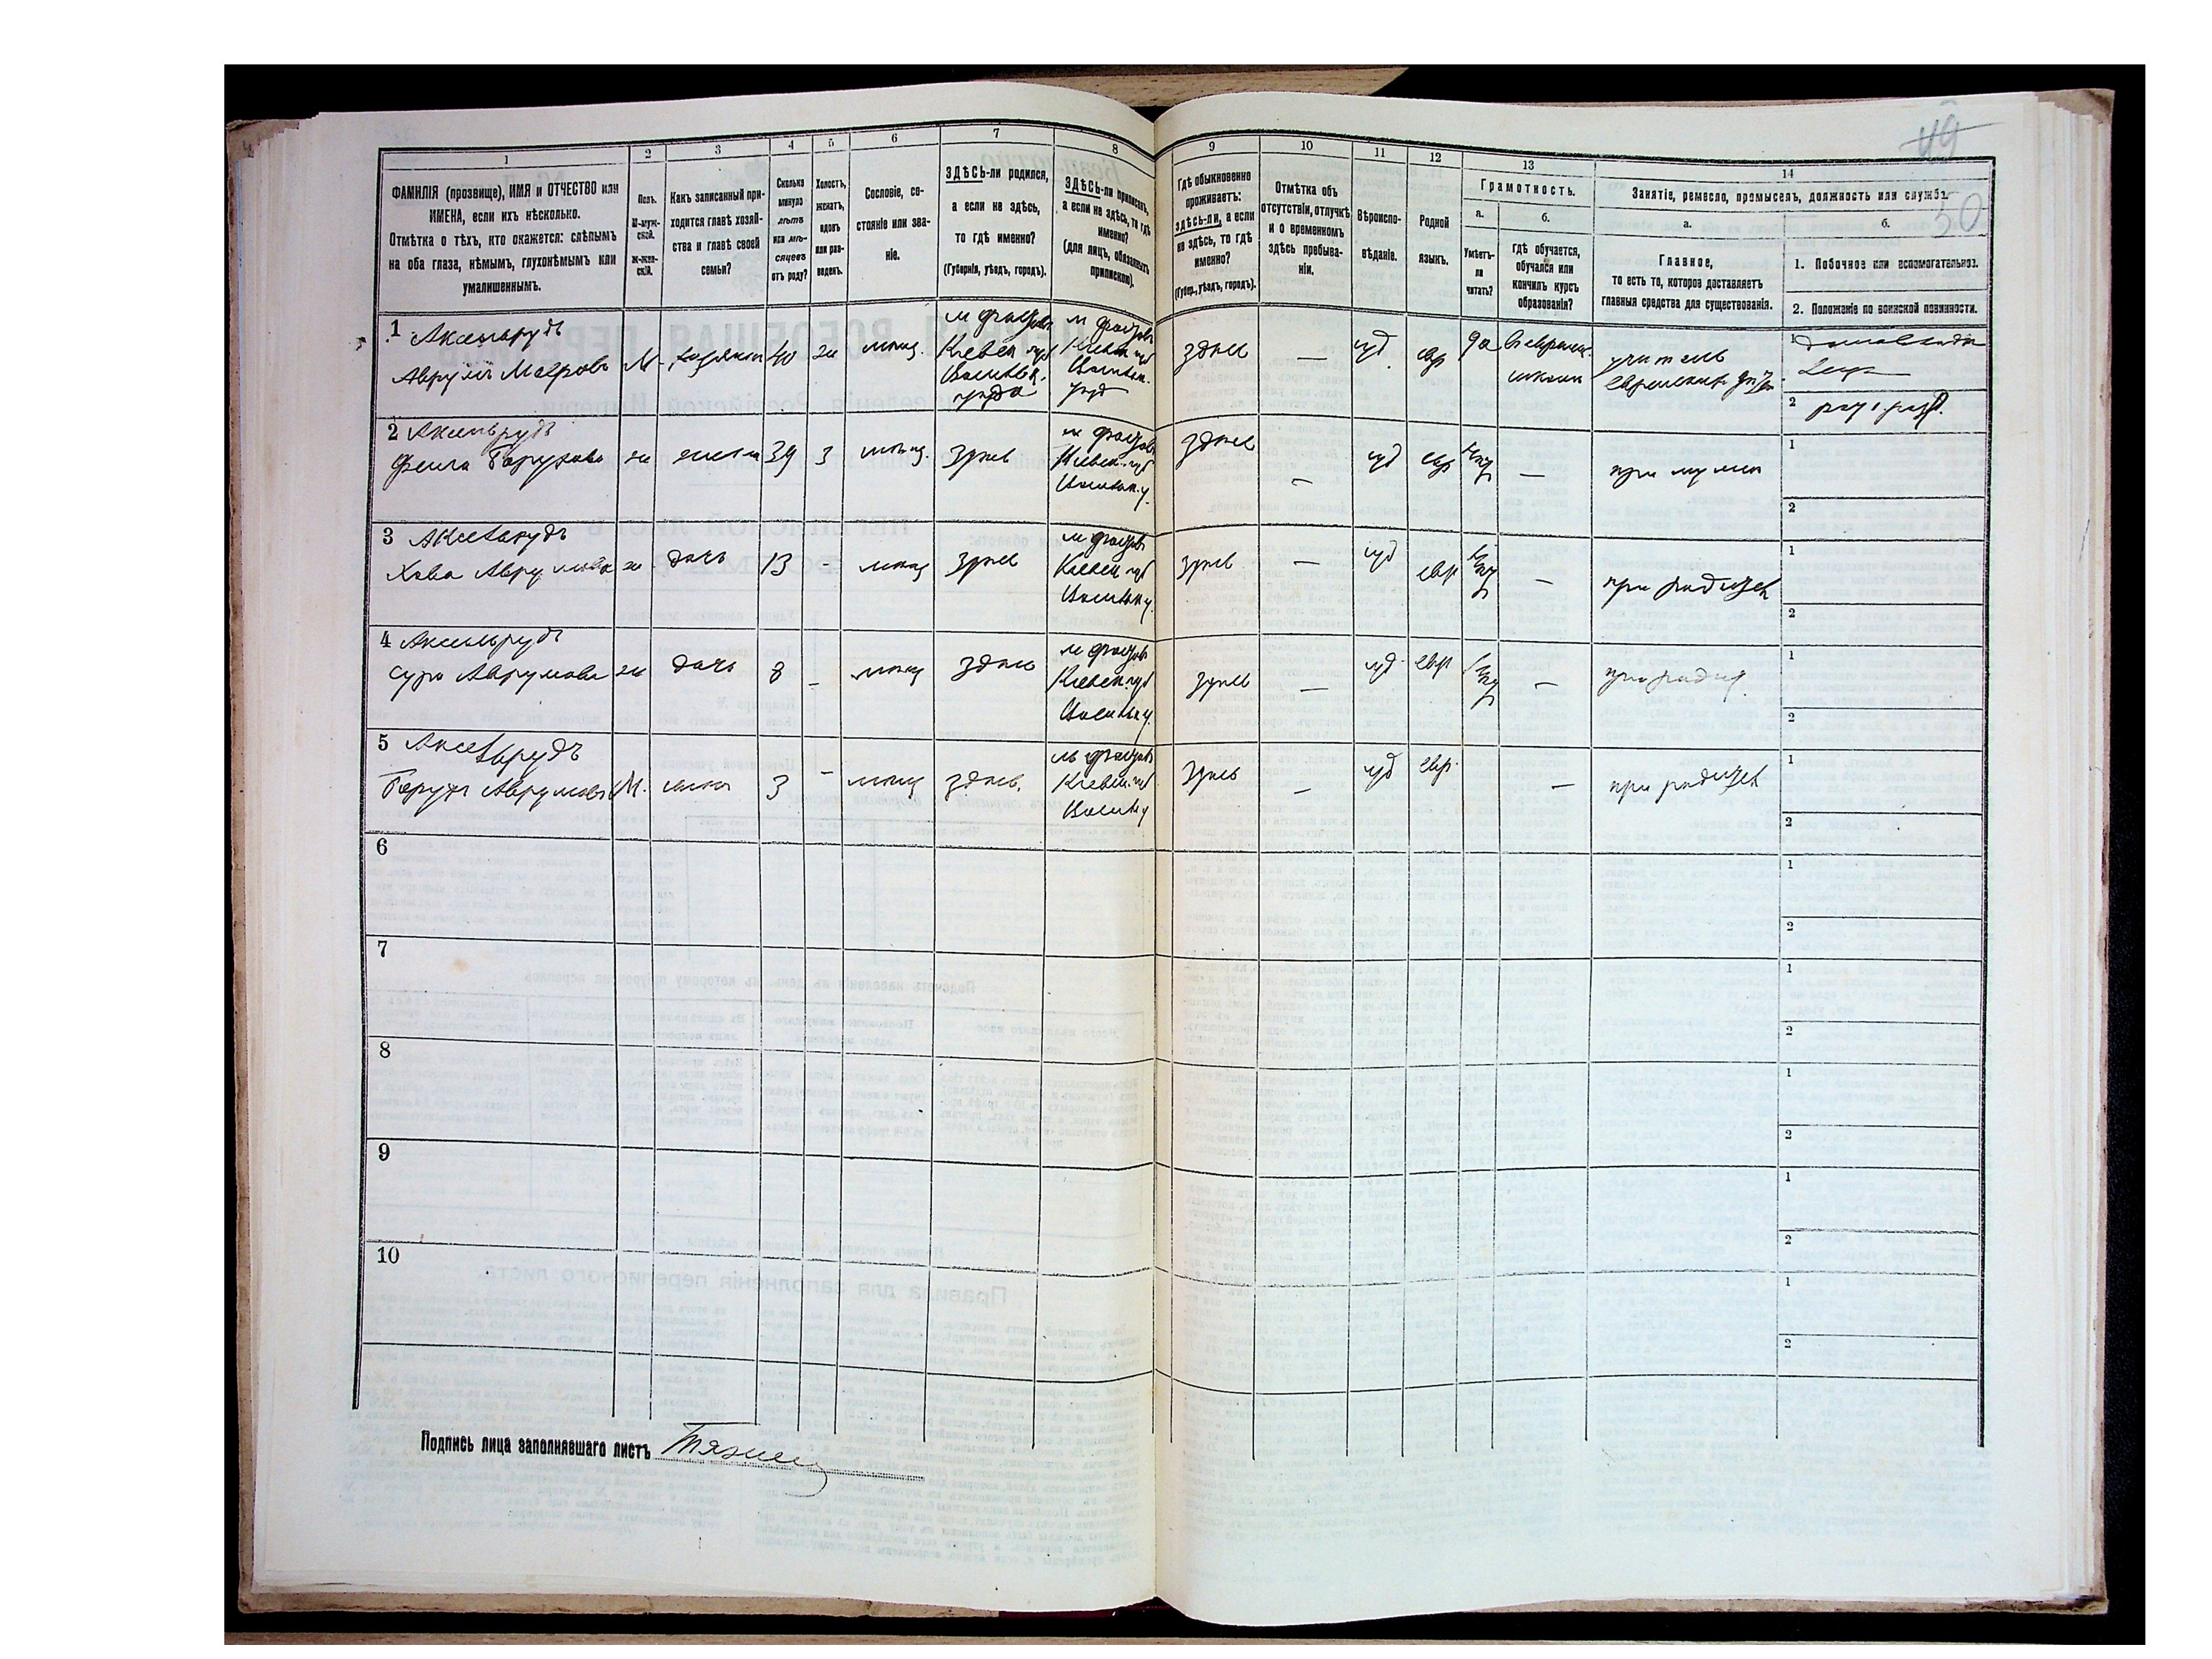 49
50
1
2
3
4
5
6
7
8
9
10
11
12
13
14
ФАМИЛІЯ (прозвище), ИМЯ и ОТЧЕСТВО или
ИМЕНА, если ихъ нѣсколько.
Отмѣтка о тѣхъ, кто окажется: слѣпымъ
на оба глаза, нѣмымъ, глухонѣмымъ или
умалишеннымъ.
Полъ.
М-муж-
ской.
Ж-жен-
скій.
Какъ записанный при-
ходится главѣ хозяй-
ства и главѣ своей
семьи?
Сколько
минуло
лѣтъ
или мѣ-
сяцевъ
отъ роду?
Холостъ,
женатъ,
вдовъ
или раз-
веденъ.
Сословіе, со-
стояніе или зва-
ніе.
ЗДѢСЬ-ли родился,
а если не здѣсь,
то гдѣ именно?
(Губернія, уѣздъ, городъ).
ЗДѢСЬ-ли приписанъ,
а если не здѣсь, то гдѣ
именно?
(для лицъ, обязанныхъ
припискою).
Гдѣ обыкновенно
проживаетъ:
здѣсь-ли, а если
не здѣсь, то гдѣ
именно?
(Губер., уѣздъ, городъ).
Отмѣтка объ
отсутствіи, отлучкѣ
и о временномъ
здѣсь пребыва-
ніи.
Вѣроиспо-
вѣданіе.
Родной
языкъ.
Грамотность.
а.
Умѣетъ-
ли
читать?
б.
гдѣ обучается,
обучался или
кончилъ курсъ
образованія?
Занятіе, ремесло, промыселъ, должность или служба.
а.
Главное,
то есть то, которое доставляетъ
главныя средства для существованія.
б.
1. Побочное или вспомогательное.
2. Положеніе по воинской повинности.
1 Аксельрудъ
Аврумъ М- хозяинъ 40 ж мѣщ.
м Фастовъ
Кіевск губ
Васильк.
уѣзда
м Фастовъ
Кіевск губ
Васильк.
уѣзд
здѣсь — іуд евр да
школа
учитель
1
2
2 Аксельрудъ
Борухова ж жена 39 з мѣщ. здѣсь
м Фастовъ
Кіевск. губ
Васильк. у.
здѣсь — іуд евр нѣт — при мужѣ
1
2
3 Аксельрудъ
Хава Аврумова ж дочь 13 - мѣщ здѣсь
м Фастовъ
Кіевск губ
Васильк у.
здѣсь — іуд евр нѣт — при родител
1
2
4 Аксельрудъ
Сура Аврумова ж дочь 8 - мѣщ здѣсь
м Фастовъ
Кіевск. губ
Васильк у.
здѣсь — іуд евр нѣт — при родит.
1
2
5 Аксельрудъ
Борухъ Аврумовъ М. сынъ 3 - мѣщ здѣсь.
м Фастовъ
Кіевск. губ
Васильк у
здѣсь — іуд евр. — при родител
1
2
6
1
2
7
1
2
8
1
2
9
1
2
10
1
2
Подпись лица заполнявшаго листъ